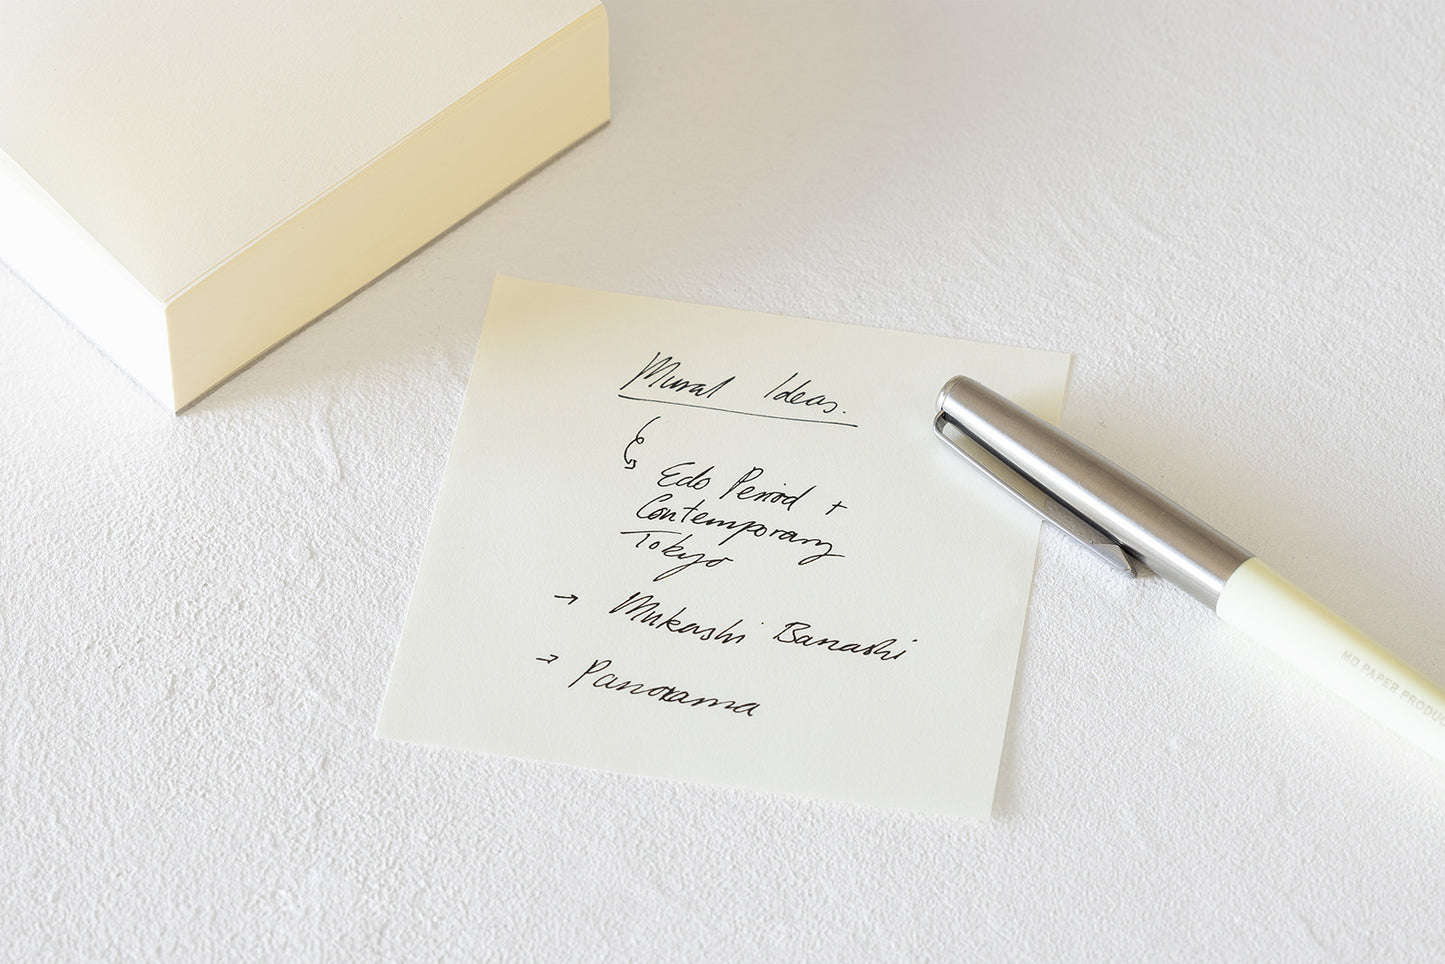 Mural Ideas.
Edo Period +
Contemporary
Tokyo
→ Mukashi Banashi
→ Panorama
MD PAPER PRODUC